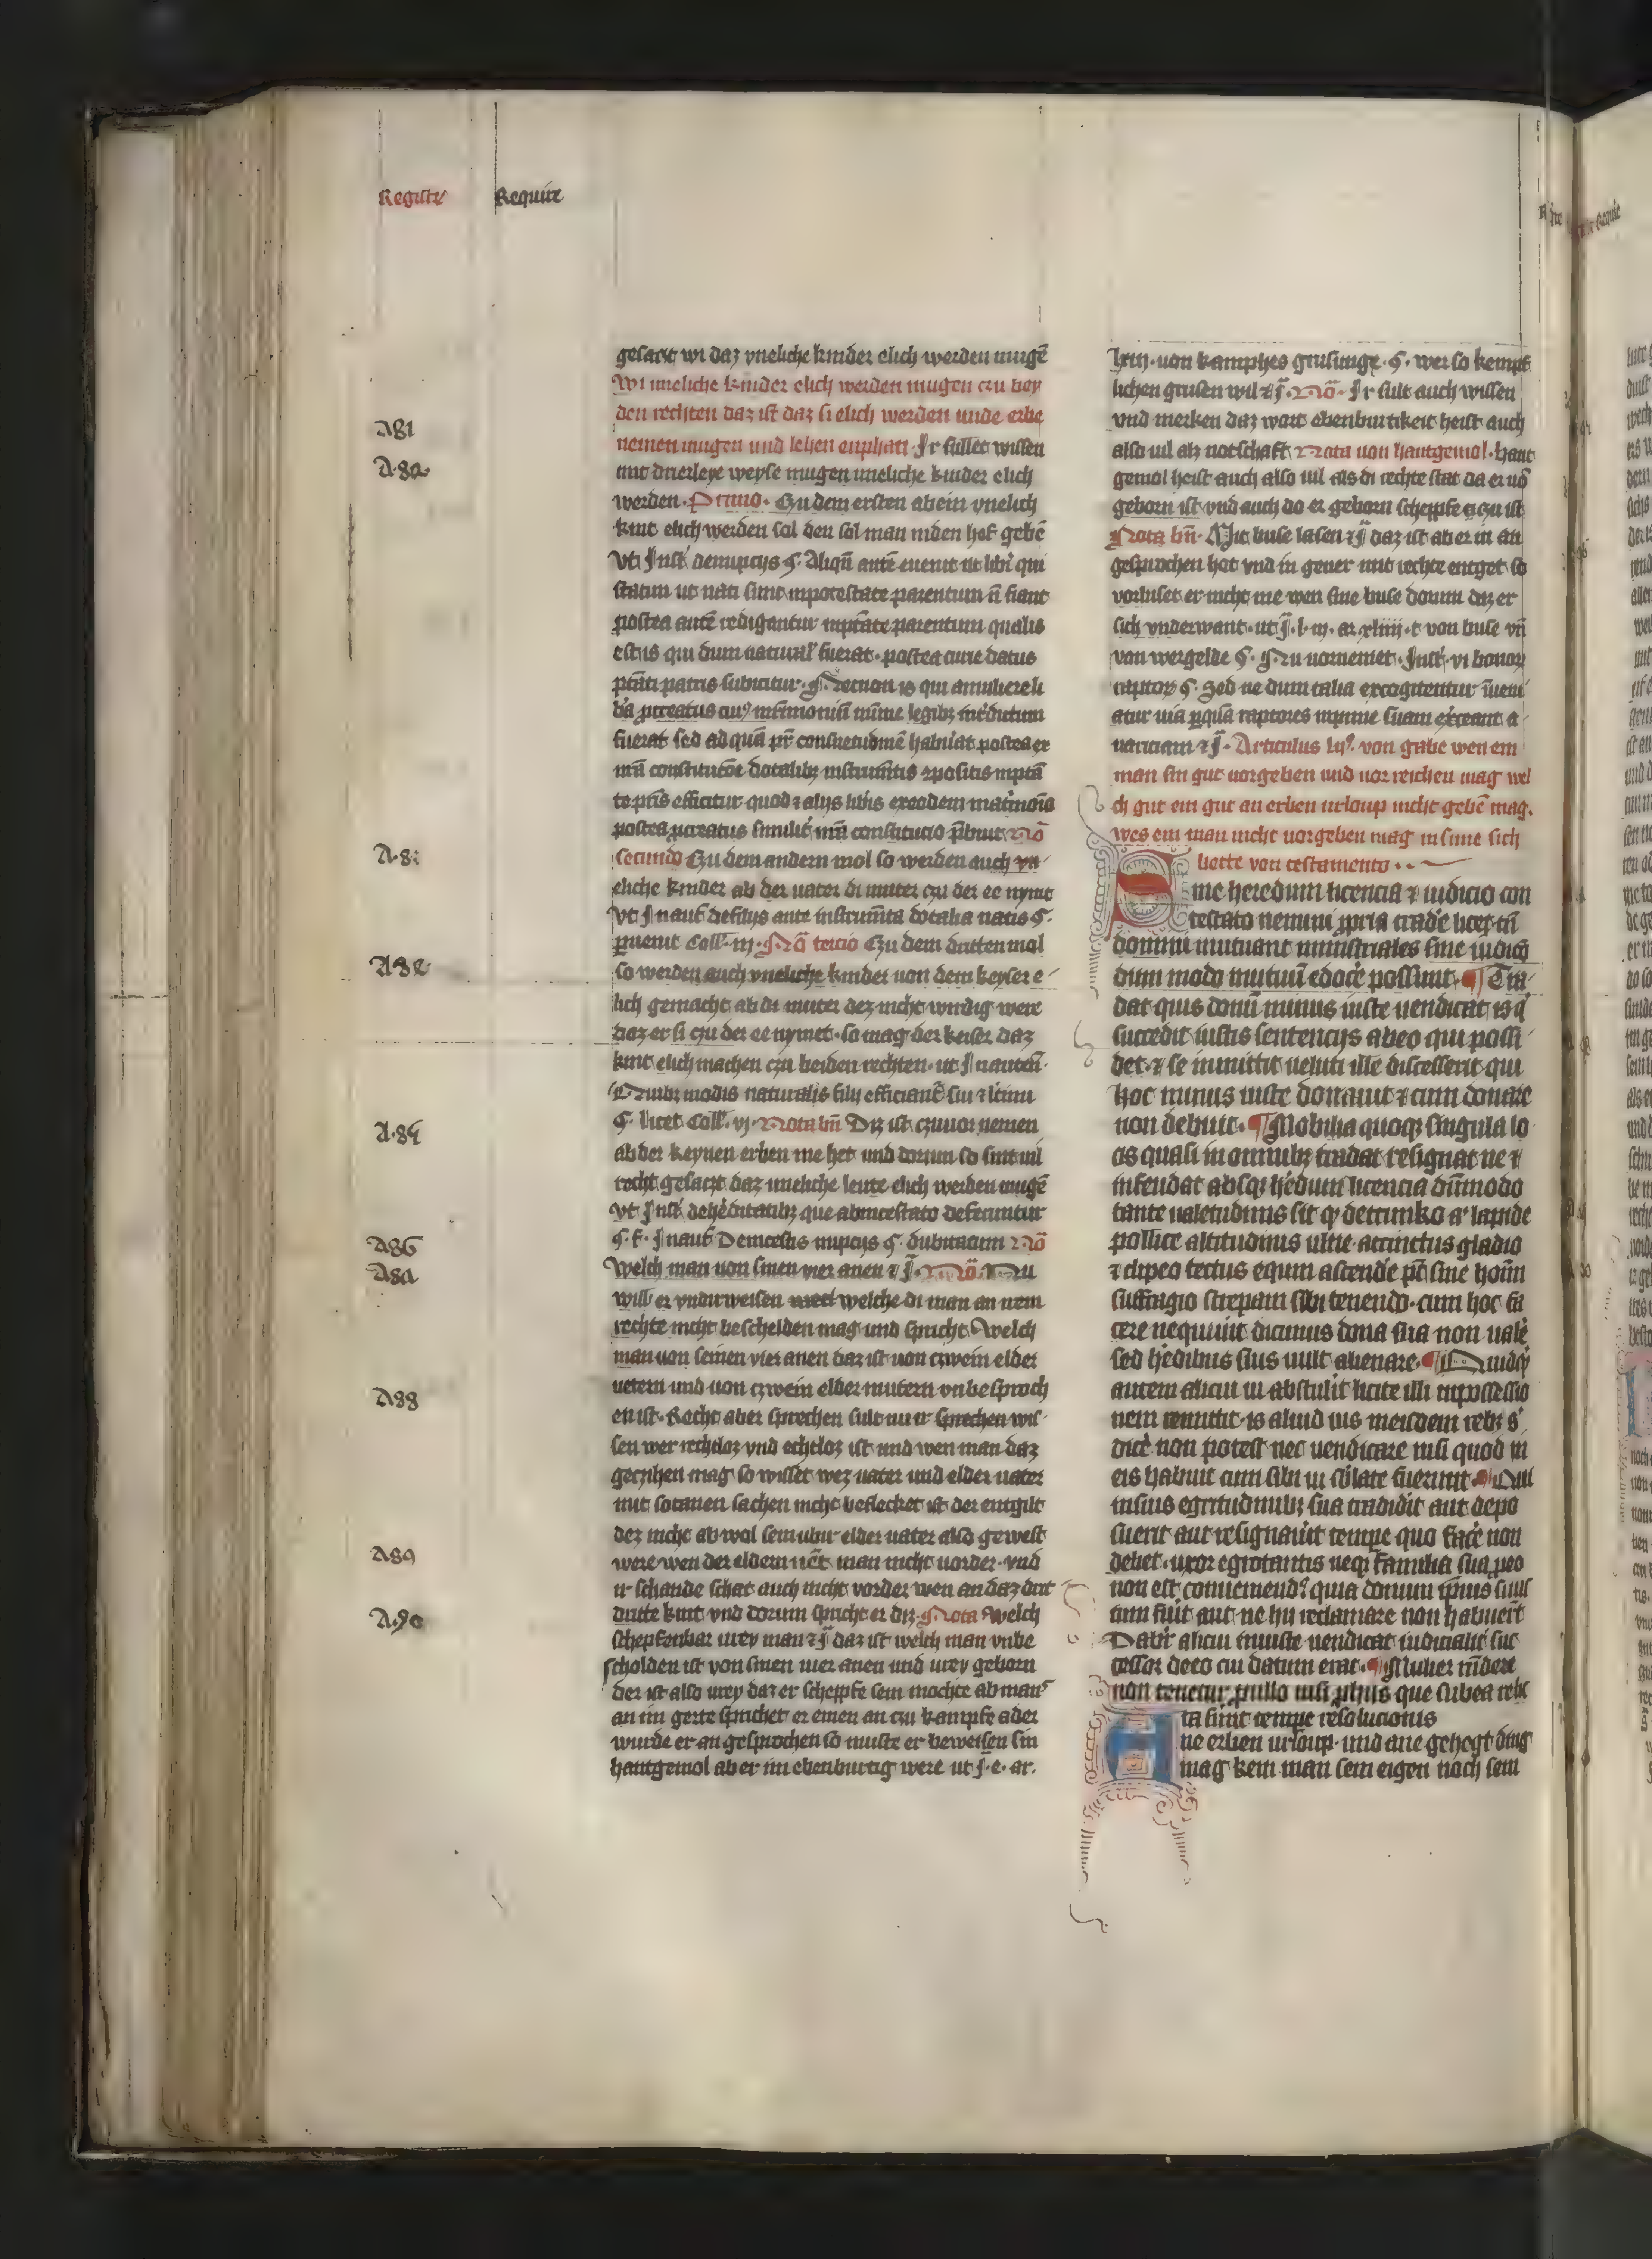 Registr̃ Require
gesaczt wi daz vneliche kinder elich werden mugē
Wi uneliche kinder elich werden mugen czu bey
den rechten daz ist daz si elich werden unde erbe
nemen mugen und lehen enphan · Jr sullet wissen
mit drierleye weyse mugen uneliche kinder elich
werden · Primo · Czu dem ersten ab ein vnelich
kint elich werden sol den sol man in den hof gebē
vt Jnsť de nupcijs ꝯ. Aliqñ autē euenit ut libĩ qui
statim ut nati sunt in potestate parentum ñ fiant
postea autē redigantur in ptãte parentum qualis
est is qui dum natural̃ fuerat · postea curie datus
ptãti patris subicitur · Necnon is qui a muliere li
bĩa ꝓcreatus cui9 mr̃imonisũ mĩme legibꝫ inťdictum
fuerat sed ad quã pr̃ consuetudinē habuĩat postea ex
nr̃a constitucõe dotalibꝫ instrumẽtis ꝯpositis in ptã
te pr̃is efficitur quod ⁊ alijs libĩs ex eodem matr̃imoĩo
postea ꝓcreatus similiť nr̃a constitucio p̃buit Nõ
secundo Czu dem andern mol so werden auch vn
eliche kinder ab der uater di muter czu der ee nymt
Vt Jn auť de filijs ante instrum̃ta dotalia natis ꝯ.
ꝑuenit Coll̃ · iij · Nõ tercio Czu dem dritten mol
so werden auch vneliche kinder von dem keyser e
lich gemacht ab di muter dez nicht wirdig were
daz er si czu der ee nymet · so mag der keiser daz
kint elich machen czu beiden rechten · ut Jn auten̂ ·
Quibꝫ modis naturales filij efficiant̃ sui ⁊ l̃timi
ꝯ. licet Coll̃ · vj · Nota bñ Diz ist czu uornemen
ab der keynen erben me het und dorum so sint uil
recht gesaczt daz uneliche leute elich werden mugē
vt Jnsť de he͛ditatibꝫ que ab intestato deferuntur
ꝯ. f. Jn auť De incestis nupcijs ꝯ. dubitatum Nõ
Welch man von sinen vier anen ⁊ c̃. Nõ. Nu
will er vndirweisen welche di man an irem
rechte nicht beschelden mag und spricht Welch
man von seinen vier anen daz ist von czwein elder
uetern und von czwein elder mutern vnbesproch
en ist · Recht aber sprechen sult nu ir sprechen wis
sen wer rechtloz vnd echtloz ist und wen man daz
geczihen mag so wisset wez uater und elder uater
mit sotanen sachen nicht beflecket ist der entgilt
dez nicht ab wol sein ubir elder uater also gewest
were wen der eldern u̇et man nicht vorder · vnd
ir schande schat auch nicht vorder wen an daz drit
dritte kint vnd dorum spricht er diz · Nota Welch
schepfenbar urey man ⁊ c̃ daz ist welch man vnbe
scholden ist von sinen uier anen und urey geborn
der ist also urey daz er scheppfe sein mochte ab mans
an im gerte sprichet er einen an czu kampfe ader
wurde er an gesprochen so muste er beweisen sin
hantgemol ab er im ebenburtig were ut j · e · ar.
lxiij · von kamphes grusunge · ꝯ. wer so kempf
lichen grusen wil ⁊ c̃. Nõ · Jr sult auch wissen
vnd merken daz wort ebenburtikeit heist auch
also uil alz notschaft Nota von hantgemol · hant
gemol heist auch also uil als di rechte stat da er uõ
geborn ist vnd auch do er geborn scheppfe czu ist
Nota bñ · Mit buse lasen ⁊ c̃ daz ist ab er in an
gesprochen hot vnd in gener mit rechte entget so
vorluset er nicht me wen sine buse dorum daz er
sich vnderwant · ut j̃ · l · iij · ar xlĩiiij · t von buse vñ
von wergelde ꝯ. Nu uornemet · Jnsť · vi bonoꝝ
raptoꝝ ꝯ. Sed ne dum talia excogitentur iñueni
atur uia ꝑ quã raptores inpune suam exͨceant a
uariciam ⁊ c̃ · Articulus lij9. von gabe wen ein
man sin gut uorgeben und vor reichen mag wel
ch gut ein gut an erben urloup nicht gebē mag.
wes ein man nicht vorgeben mag in sime sich
bette von testamento · · ~
Sine heredum licencia ⁊ iudicio con
testato nemini ꝓpria trad͛e licet · tñ
domini mutuant ministriales sine iudicio
dum modo mutuũ edocẽ possint · ¶ Tra
dat quis donũ minus iuste uendicat is q̇
succedit iustis sentencijs ab eo qui possi
det · ⁊ se inmittit ueluti ille discesserit qui
hoc minus iuste donauit ⁊ cum donare
non debuit. ¶ Mobilia quoqꝫ singula lo
cis quasi in omnibꝫ tradat resignat ne ⁊
infeudat absqꝫ he͛dum licencia dũmodo
tante ualetudinis sit ꝙ de trunko a lapide
pollice altitudinis ulnie · accinctus gladio
⁊ clipeo tectus equum ascende͛ pt̃ sine hoĩm
suffragio strepam sibi tenendo · cum hoc fa
cere nequiuit dicimus dona sua non vale͛
sed he͛dibus suis uult alienare · ¶ Quidqͥ
autem alicui ui abstulit licite illi in possessio
nem remittit · is aliud ius in eisdem rebꝫ s͛
dice͛ non potest nec uendicare nisi quod in
eis habuit cum sibi ui sublate fuerunt · ¶ Qui
insius egritudinibꝫ sua tradidit aut depo
suerit aut resignauit tempe quo face͛ non
debet · uxor egrotantis neqꝫ familia sua ꝓ eo
non est conueniend9 quia donum ip̃ius suũ
tim fiũt aut ne hij reclamare non habuer̃t
Datũ alicui iniuste uendicat iudicialit̃ suc
cessor de eo cui datum erat · ¶ Mulier rñde͛e
non tenetur ꝓ nullo nisi ꝓ hijs que sub ea rebꝫ
ta sunt tempe resolucionis
Ane erben urloup · und ane gehegt ding
mag kein man sein eigen noch sein
A81
A·82
A·8:
A·8¿
A·8¿
A86
A8¿
A88
A89
A·90